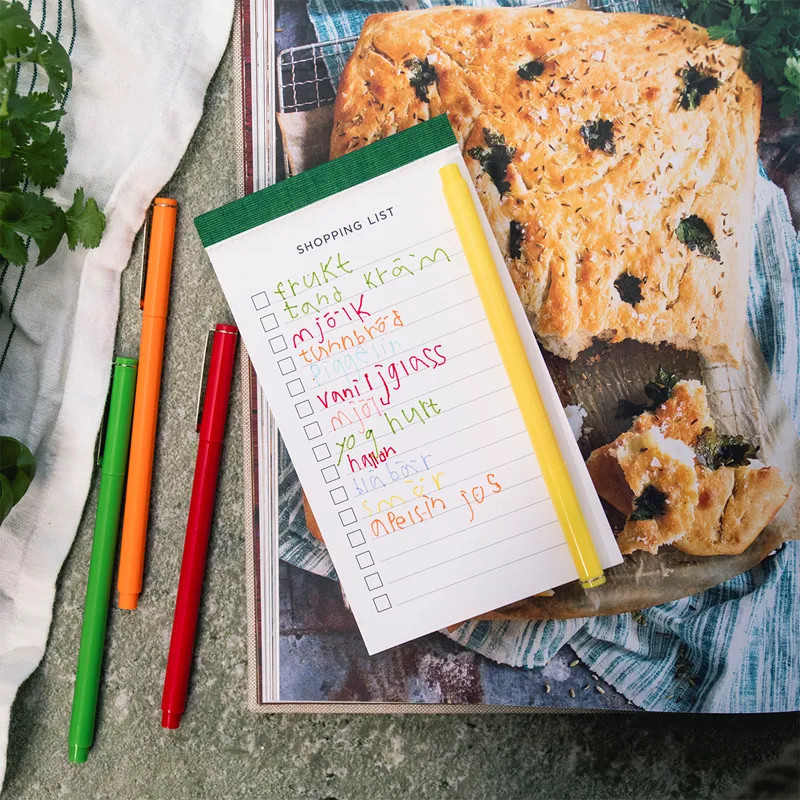 SHOPPING LIST
frukt
tand kräm
mjölk
tunnbröd
Piggelin
vaniljglass
mjöl
yoghurt
hallon
blåbär
smör
apelsin jos